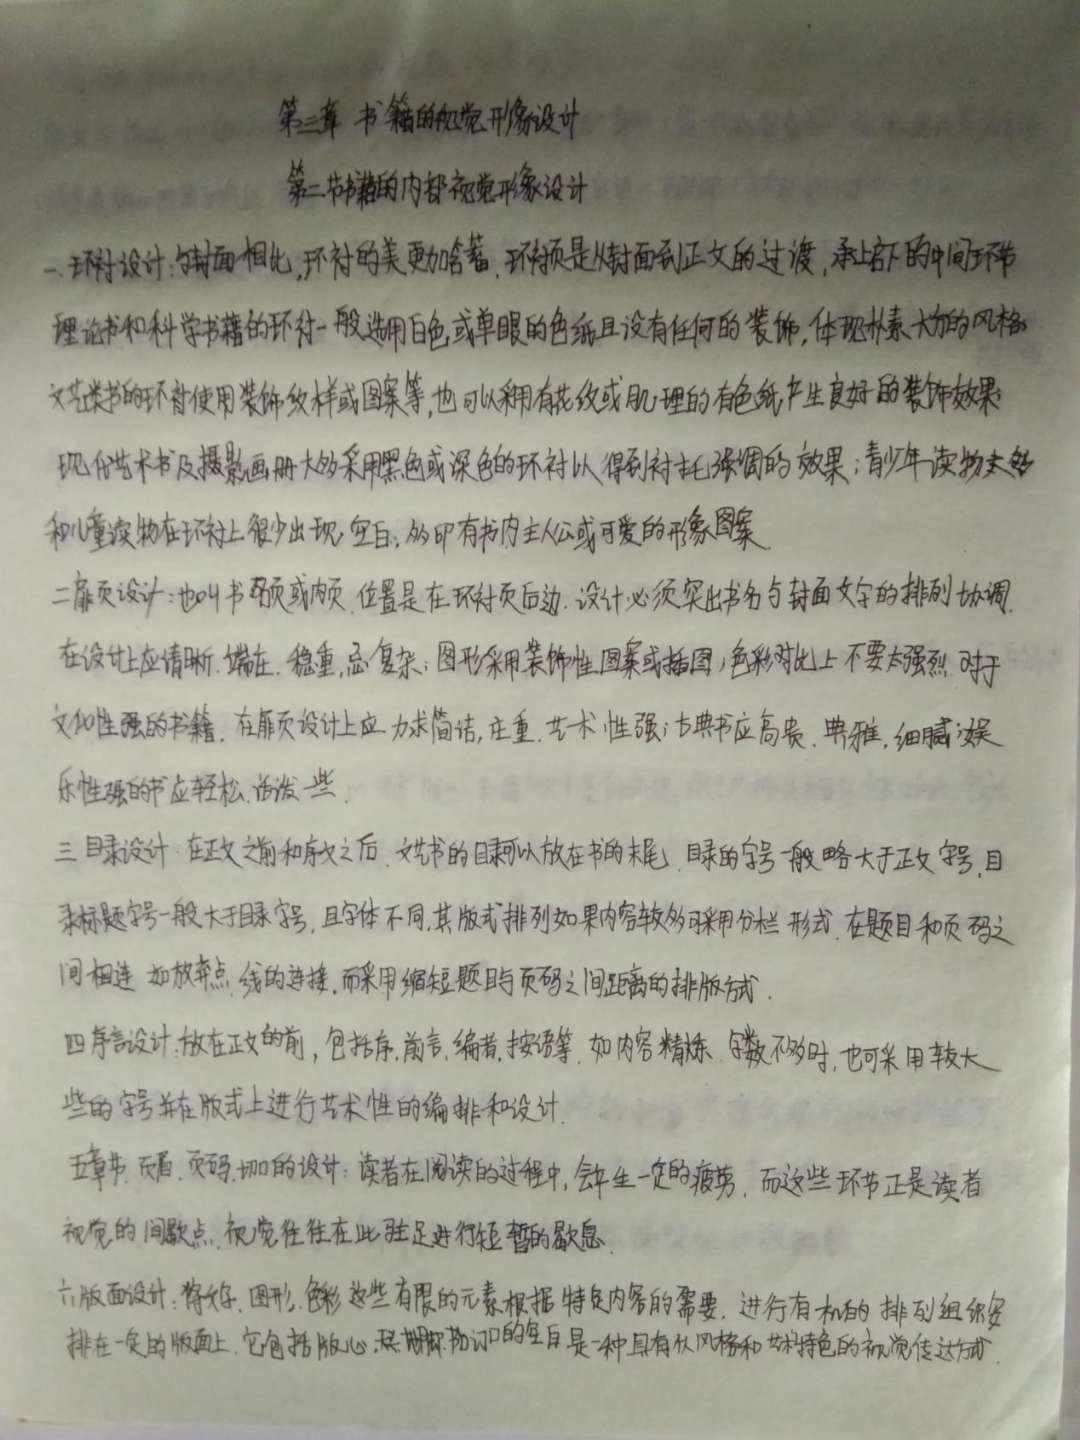 第三章 书籍的视觉形象设计
第二节书籍的内部视觉形象设计
一.环衬设计:与封面相比,环衬的美更加含蓄.环衬页是从封面到正文的过渡,承上启下的中间环节
理论书和科学书籍的环衬一般选用白色或单眼的色纸且没有任何的装饰,体现朴素大方的风格
文艺类书的环衬使用装饰纹样或图案等,也可以采用有花纹或肌理的有色纸产生良好的装饰效果
现代艺术书及摄影画册大多采用黑色或深色的环衬以得到衬托强调的效果;青少年读物
和儿童读物在环衬上很少出现空白,多印有书内主人公或可爱的形象图案
二扉页设计:也叫书名页或内页.位置是在环衬页后边.设计必须突出书名与封面文字的排列协调.
在设计上应清晰.端庄.稳重,忌复杂;图形采用装饰性图案或插图;色彩对比上不要太强烈.对于
文化性强的书籍.在扉页设计上应力求简洁,庄重.艺术性强;古典书应高贵.典雅,细腻;娱
乐性强的书应轻松.活泼一些.
三目录设计.在正文之前和序文之后.文艺书的目录可以放在书的末尾.目录的字号一般略大于正文字号,目
录标题字号一般大于目录字号,且字体不同,其版式排列如果内容较多可采用分栏形式.在题目和页码之
间相连 如放弃点.线的连接.而采用缩短题目与页码之间距离的排版方式.
四序言设计:放在正文的前,包括序.前言.编者.按语等.如内容精炼.字数不多时,也可采用较大
些的字号并在版式上进行艺术性的编排和设计.
五章节.页眉.页码.切口的设计:读者在阅读的过程中,会产生一定的疲劳.而这些环节正是读者
视觉的间歇点.视觉往往在此驻足进行短暂的歇息.
六版面设计:将文字.图形.色彩这些有限的元素根据特定内容的需要.进行有机的排列组织安
排在一定的版面上.它包括版心.天头地脚.订口的空白是一种具有个人风格和艺术特色的视觉传达方式.